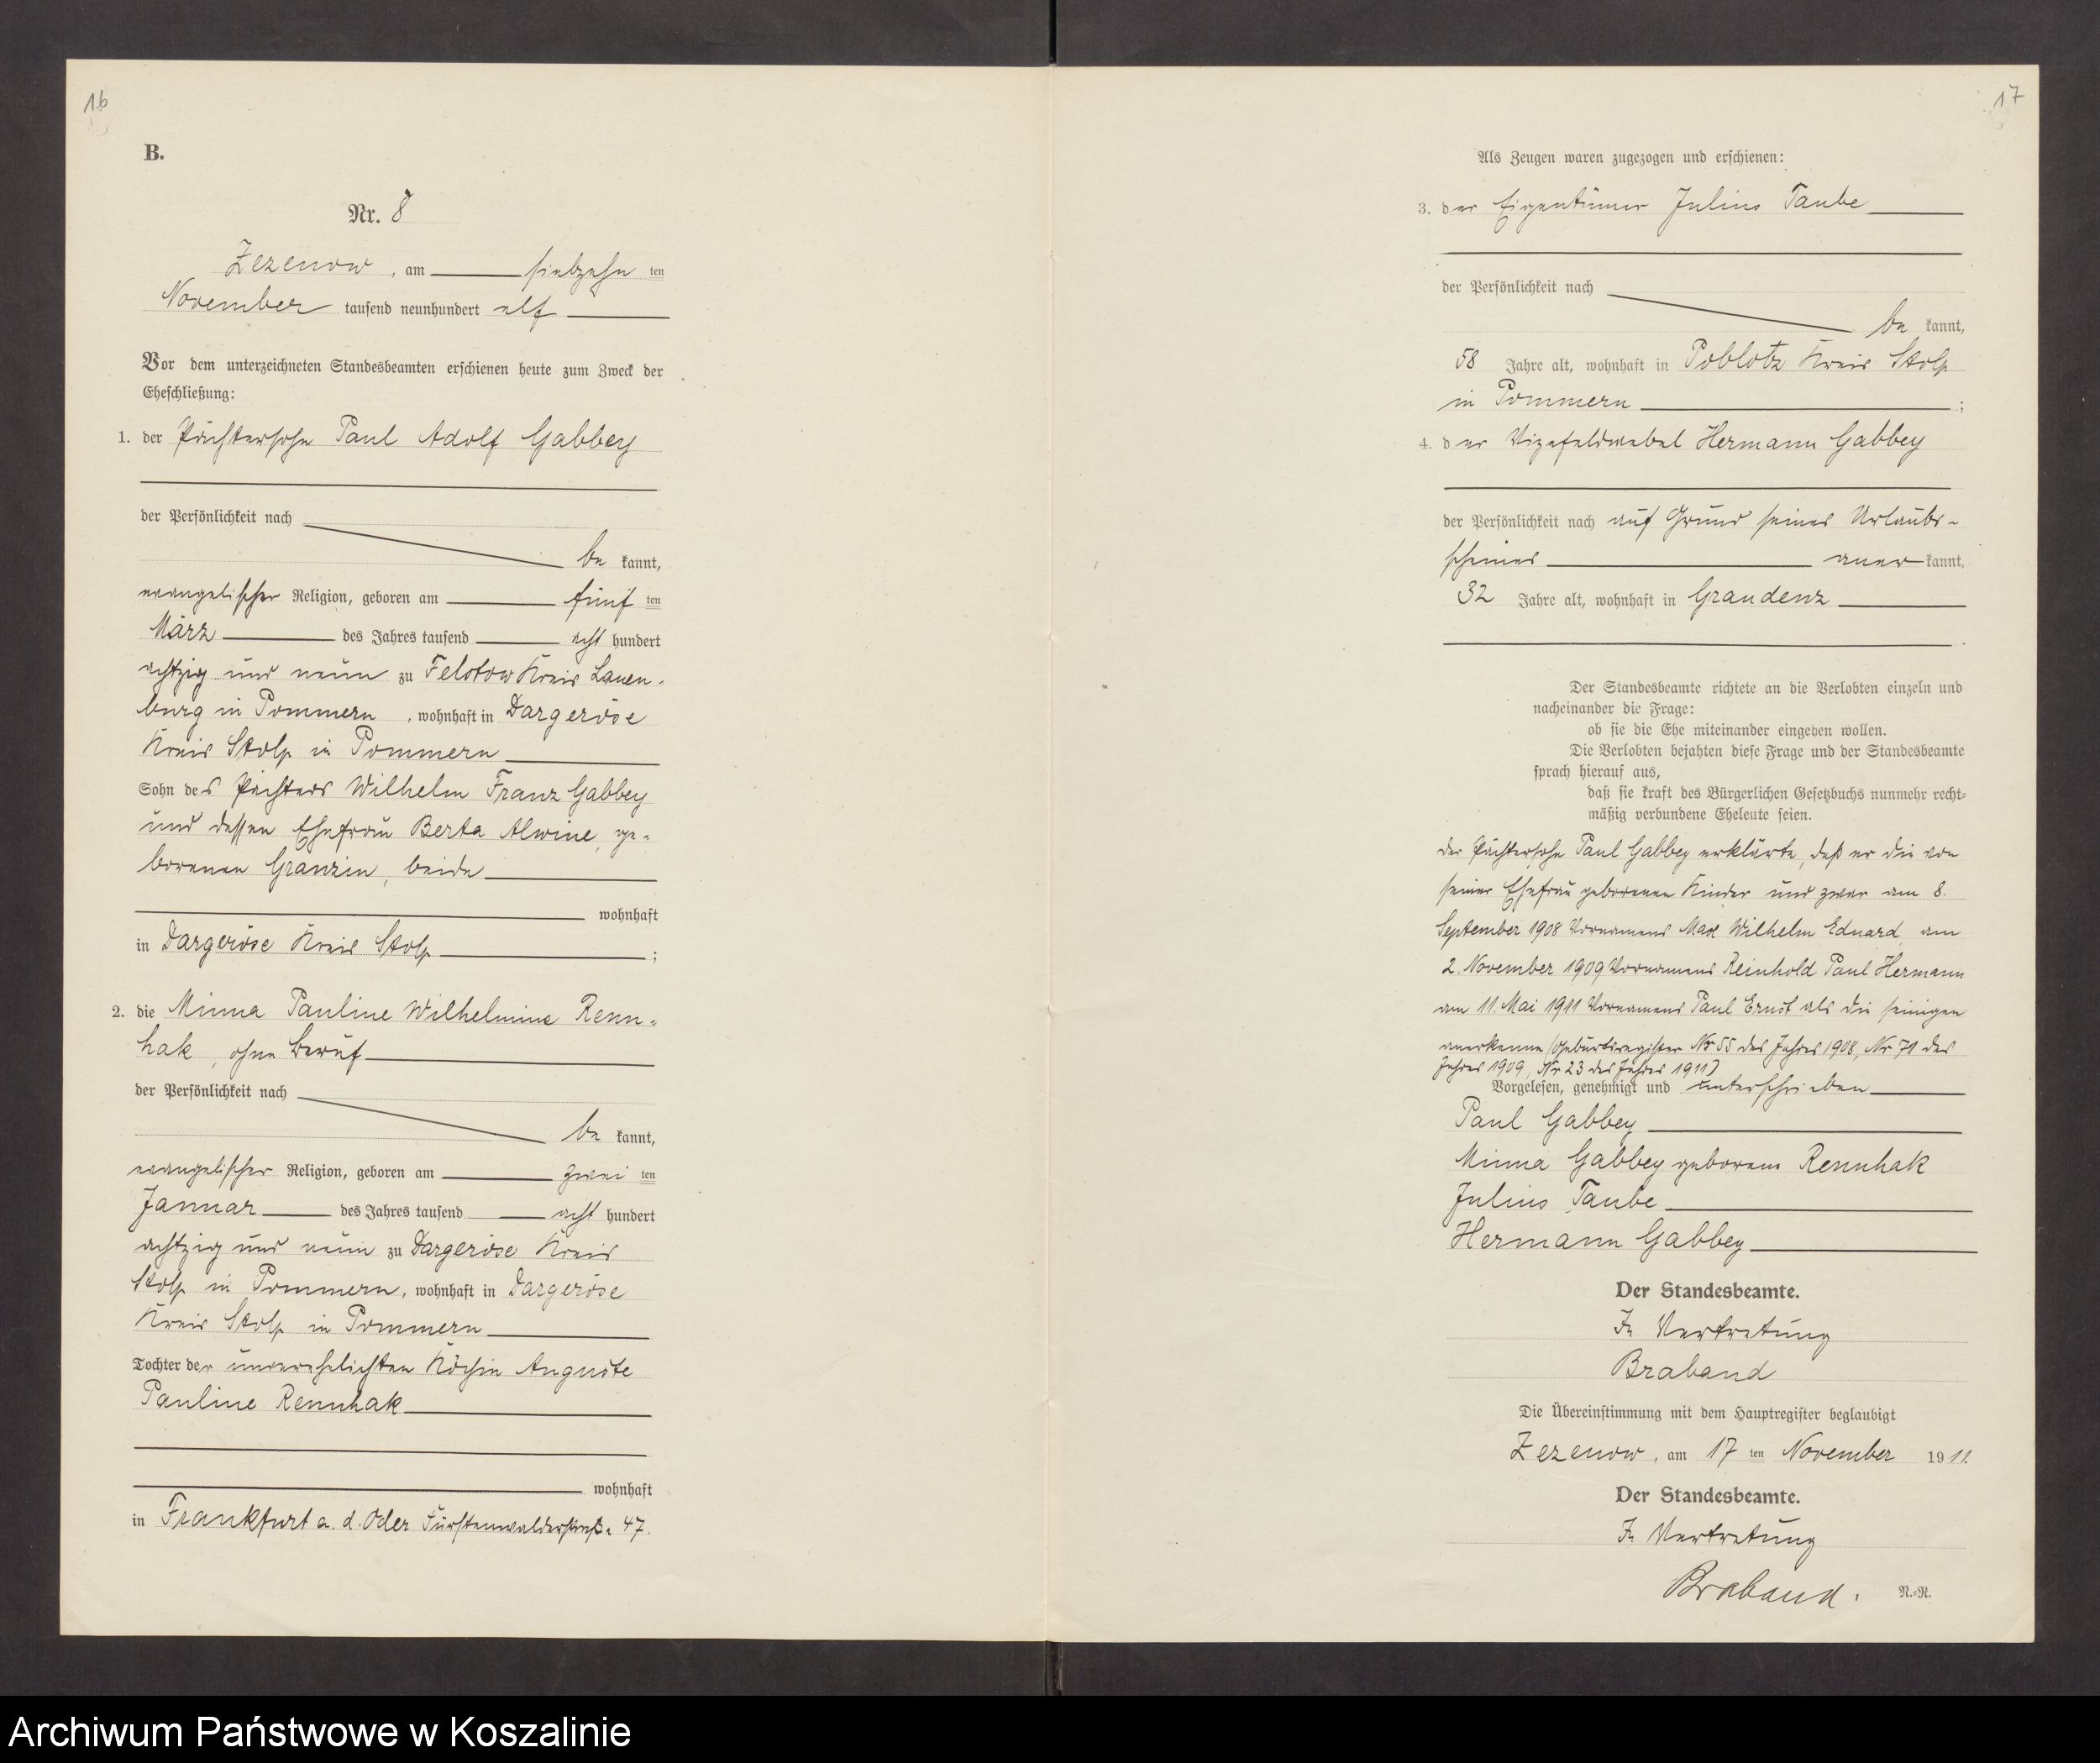 16
B.
Nr. 8
Zezenow, am siebzehn ten
November tausend neunhundert elf
Vor dem unterzeichneten Standesbeamten erschienen heute zum Zweck der
Eheschließung:
1. der Pächtersohn Paul Adolf Gabbey
der Persönlichkeit nach
be kannt,
evangelischer Religion, geboren am fünf ten
März des Jahres tausend acht hundert
achtzig und neun zu Felstow Kreis Lauen-
burg in Pommern, wohnhaft in Dargeröse
Kreis Stolp in Pommern
Sohn des Pächters Wilhelm Franz Gabbey
und dessen Ehefrau Berta Alwine, ge-
borenen Granzin, beide
wohnhaft
in Dargeröse Kreis Stolp;
2. die Minna Pauline Wilhelmine Renn-
hak, ohne Beruf
der Persönlichkeit nach
be kannt,
evangelischer Religion, geboren am zwei ten
Januar des Jahres tausend acht hundert
achtzig und neun zu Dargeröse Kreis
Stolp in Pommern, wohnhaft in Dargeröse
Kreis Stolp in Pommern
Tochter der unverehelichten Köchin Auguste
Pauline Rennhak
wohnhaft
in Frankfurt a. d. Oder Fürstenwalderstraße 47.
17
Als Zeugen waren zugezogen und erschienen:
3. der Eigentümer Julius Taube
der Persönlichkeit nach
be kannt,
58 Jahre alt, wohnhaft in Poblotz Kreis Stolp
in Pommern;
4. der Vizefeldwebel Hermann Gabbey
der Persönlichkeit nach auf Grund seines Urlaubs-
scheines aner kannt,
32 Jahre alt, wohnhaft in Graudenz
.
Der Standesbeamte richtete an die Verlobten einzeln und
nacheinander die Frage:
ob sie die Ehe miteinander eingehen wollen.
Die Verlobten bejahten diese Frage und der Standesbeamte
sprach hierauf aus,
daß sie kraft des Bürgerlichen Gesetzbuchs nunmehr recht-
mäßig verbundene Eheleute seien.
Der Pächtersohn Paul Gabbey erklärte, daß er die von
seiner Ehefrau geborenen Kinder und zwar am 8.
September 1908 Vornamens Max Wilhelm Eduard, am
2. November 1909 Vornamens Reinhold Paul Hermann
am 11. Mai 1911 Vornamens Paul Ernst als die seinigen
anerkenne (Geburtsregister Nr 55 des Jahres 1908, Nr 71 des
Jahres 1909, Nr 23 des Jahres 1911)
Vorgelesen, genehmigt und unterschrieben
Paul Gabbey
Minna Gabbey geborene Rennhak
Julius Taube
Hermann Gabbey
Der Standesbeamte.
In Vertretung
Braband
Die Übereinstimmung mit dem Hauptregister beglaubigt
Zezenow, am 17 ten November 1911.
Der Standesbeamte.
In Vertretung
Braband.
N.-R.
Archiwum Państwowe w Koszalinie